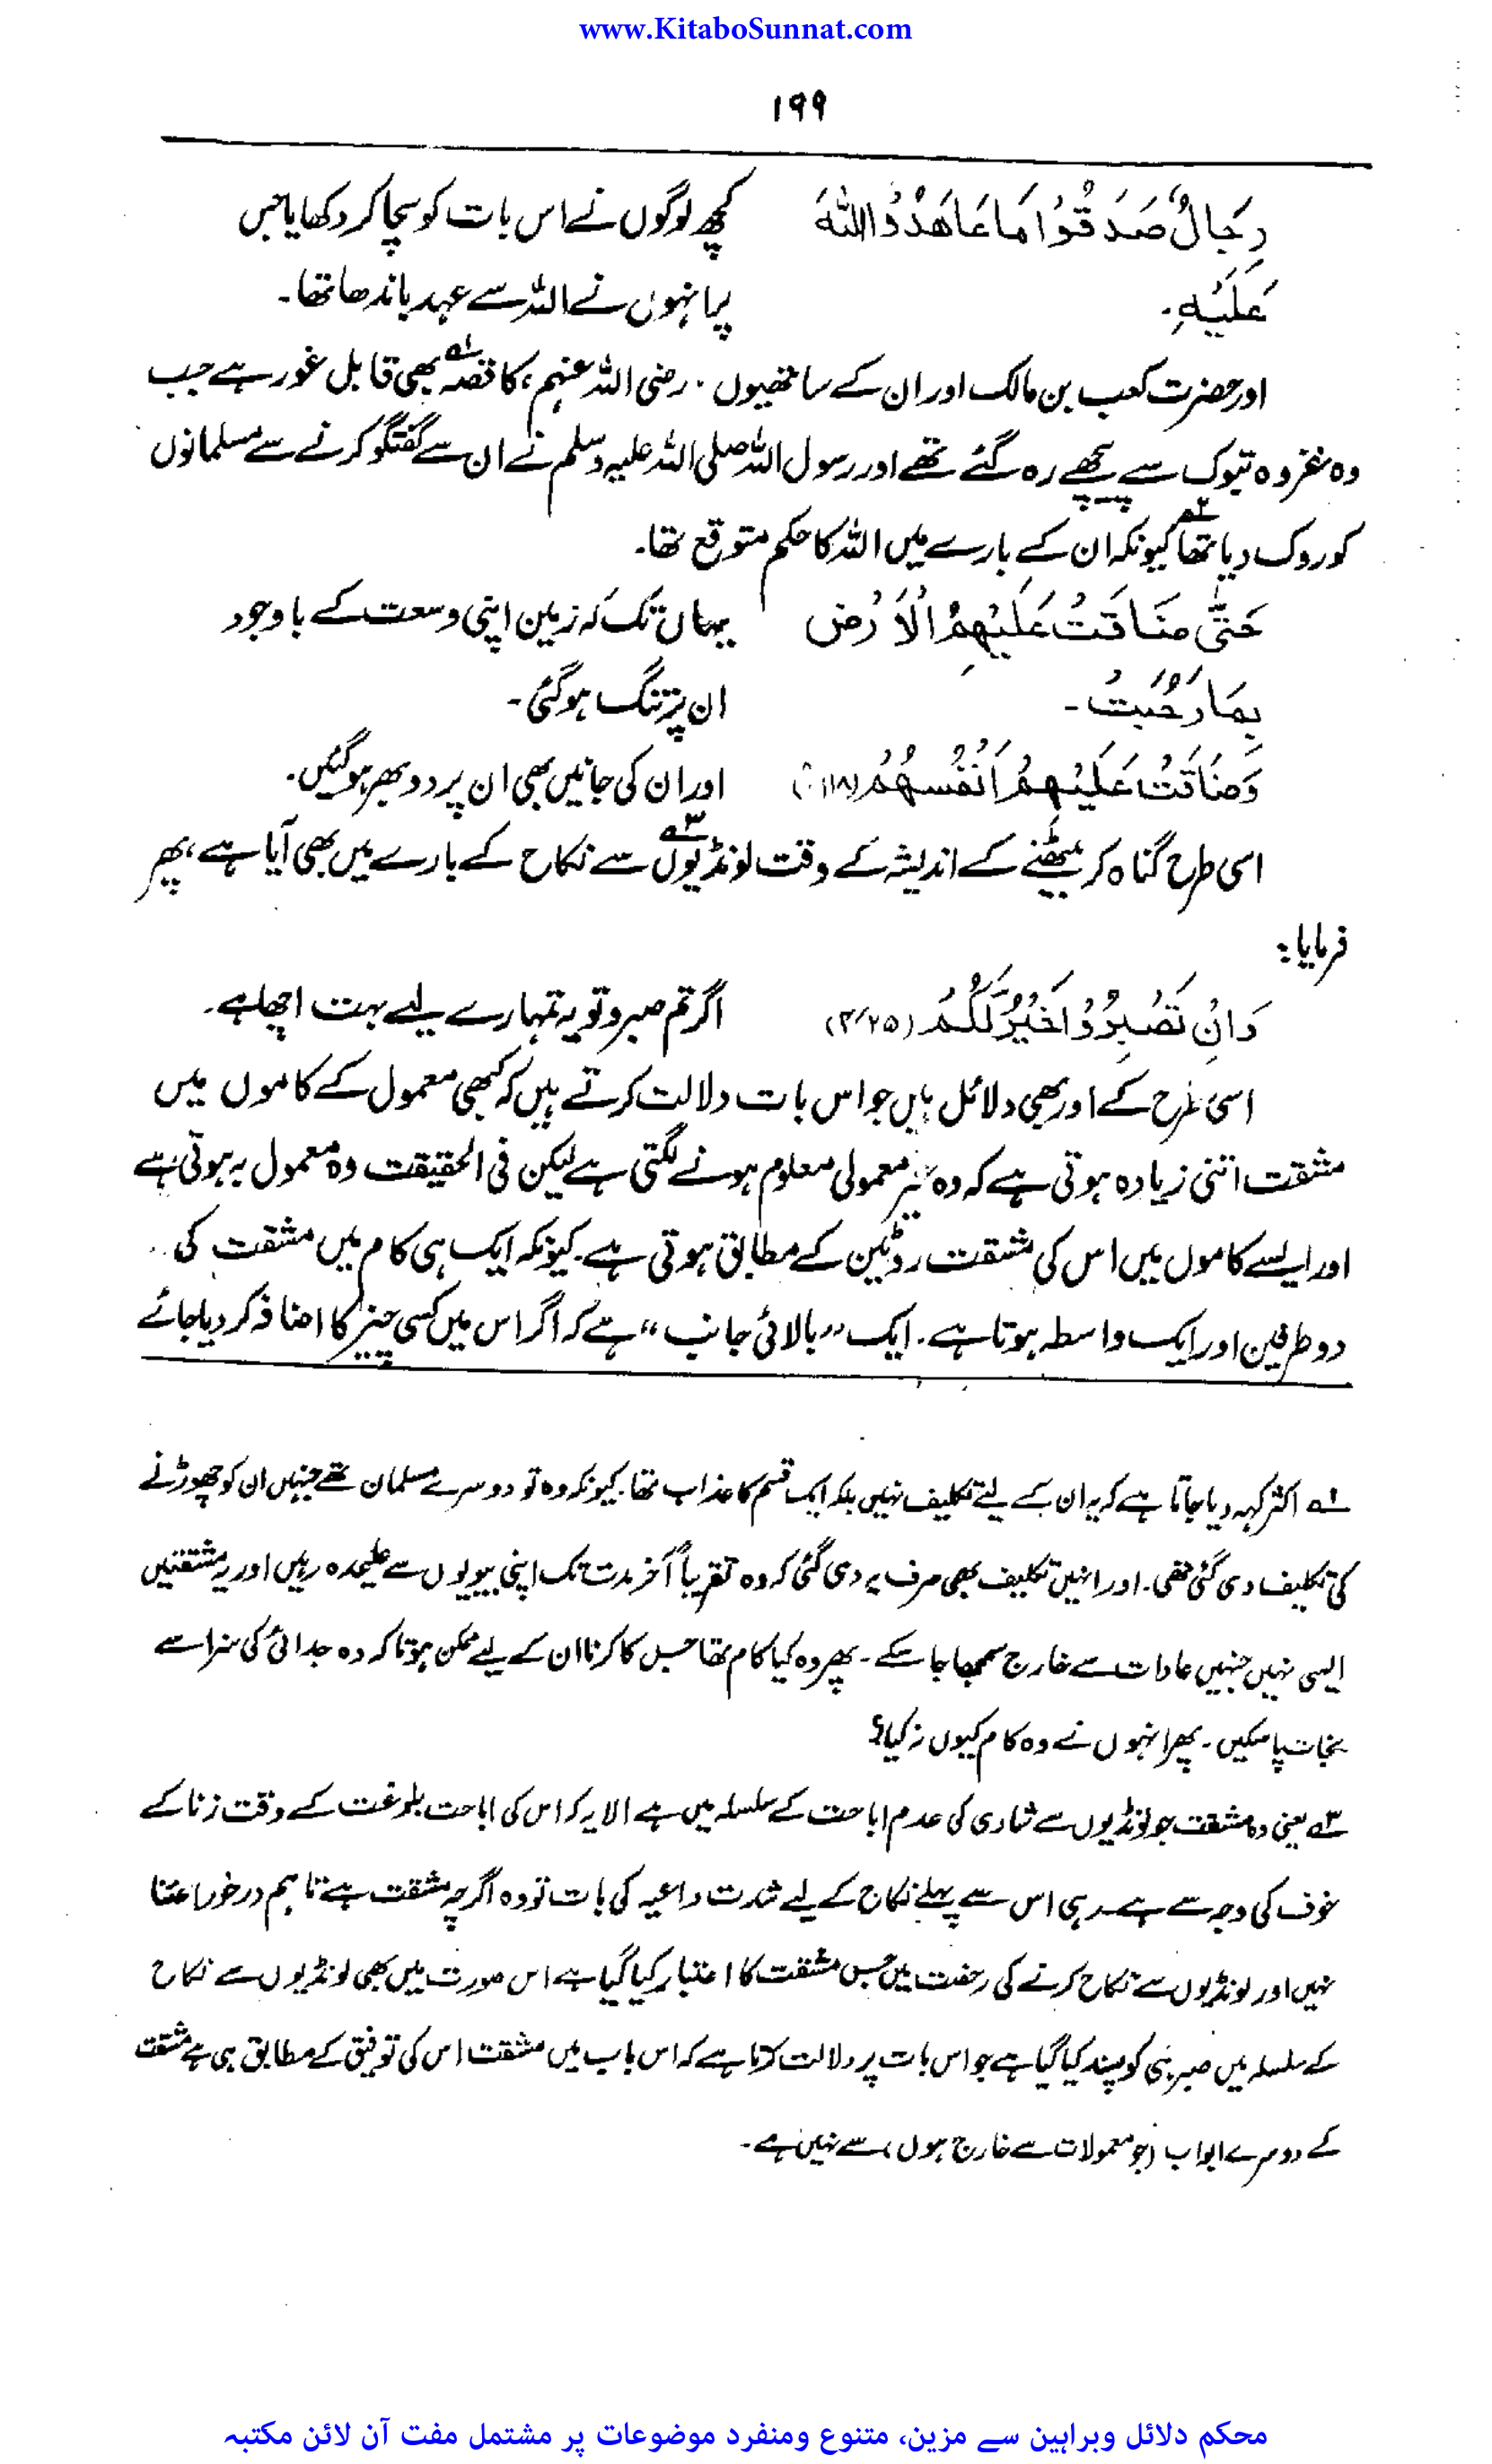 www.KitaboSunnat.com
۱۹۹
رِجَالٌ صَدَقُوْا مَا عَاهَدُوا اللّٰهَ کچھ لوگوں نے اس بات کو سچا کر دکھایا جس
عَلَيْهِ۔ پر انہوں نے اللہ سے عہد باندھا تھا۔
اور حضرت کعب بن مالک اور ان کے ساتھیوں ۔ رضی اللہ عنہم، کا قصہ۱ بھی قابل غور ہے جب
وہ غزوہ تبوک سے پیچھے رہ گئے تھے اور رسول اللہ صلی اللہ علیہ وسلم نے ان سے گفتگو کرنے سے مسلمانوں
کو روک دیا تھا۲ کیونکہ ان کے بارے میں اللہ کا حکم متوقع تھا۔
حَتّٰى ضَاقَتْ عَلَيْهِمُ الْاَرْضُ یہاں تک کہ زمین اپنی وسعت کے باوجود
بِمَا رَحُبَتْ۔ ان پر تنگ ہو گئی۔
وَضَاقَتْ عَلَيْهِمْ اَنْفُسُهُمْ اور ان کی جانیں بھی ان پر دوبھر ہو گئیں۔
اسی طرح گناہ کر بیٹھنے کے اندیشہ کے وقت لونڈیوں۳ سے نکاح کے بارے میں بھی آیا ہے، پھر
فرمایا:
وَاَنْ تَصْبِرُوْا خَيْرٌ لَّكُمْ (۴/۲۵) اگر تم صبرو تو یہ تمہارے لیے بہت اچھا ہے۔
اسی طرح کے اور بھی دلائل ہیں جو اس بات دلالت کرتے ہیں کہ کبھی معمول کے کاموں میں
مشقت اتنی زیادہ ہوتی ہے کہ وہ غیر معمولی معلوم ہونے لگتی ہے لیکن فی الحقیقت وہ معمول بہ ہوتی ہے
اور ایسے کاموں میں اس کی مشقت روٹین کے مطابق ہوتی ہے۔ کیونکہ ایک ہی کام میں مشقت کی
دو طرفین اور ایک واسطہ ہوتا ہے۔ ایک ”بالائی جانب“ ہے کہ اگر اس میں کسی چیز کا اضافہ کر دیا جائے
۱ اکثر کہہ دیا جاتا ہے کہ یہ ان کے لئے تکلیف نہیں بلکہ ایک قسم کا عذاب تھا۔ کیونکہ وہ تو دوسرے مسلمان تھے جنہیں ان کو چھوڑنے
کی تکلیف دی گئی تھی۔ اور انہیں تکلیف بھی صرف یہ دی گئی کہ وہ تقریباً آخر مدت تک اپنی بیویوں سے علیحدہ رہیں اور یہ مشقتیں
ایسی نہیں جنہیں عادات سے خارج سمجھا جا سکے۔ پھر وہ کیا کام تھا جس کا کرنا ان کے لیے ممکن ہوتا کہ وہ جدائی کی سزا سے
نجات پا سکیں۔ پھر انہوں نے وہ کام کیوں نہ کیا؟
۳ یعنی وہ مشقت جو لونڈیوں سے شادی کی عدم اباحت کے سلسلہ میں ہے الا یہ کہ اس کی اباحت بلوغت کے وقت زنا کے
خوف کی وجہ سے ہے۔ رہی اس سے پہلے نکاح کے لیے شدت داعیہ کی بات تو وہ اگرچہ مشقت ہے تاہم درخور اعتنا
نہیں اور لونڈیوں سے نکاح کرنے کی رخصت میں جس مشقت کا اعتبار کیا گیا ہے اس صورت میں بھی لونڈیوں سے نکاح
کے سلسلہ میں صبر ہی کو پسند کیا گیا ہے جو اس بات پر دلالت کرتا ہے کہ اس باب میں مشقت اس کی توفیق کے مطابق ہی ہے مشقت
کے دوسرے ابواب (جو معمولات سے خارج ہوں) سے نہیں ہے۔
محکم دلائل وبراہین سے مزین، متنوع ومنفرد موضوعات پر مشتمل مفت آن لائن مکتبہ